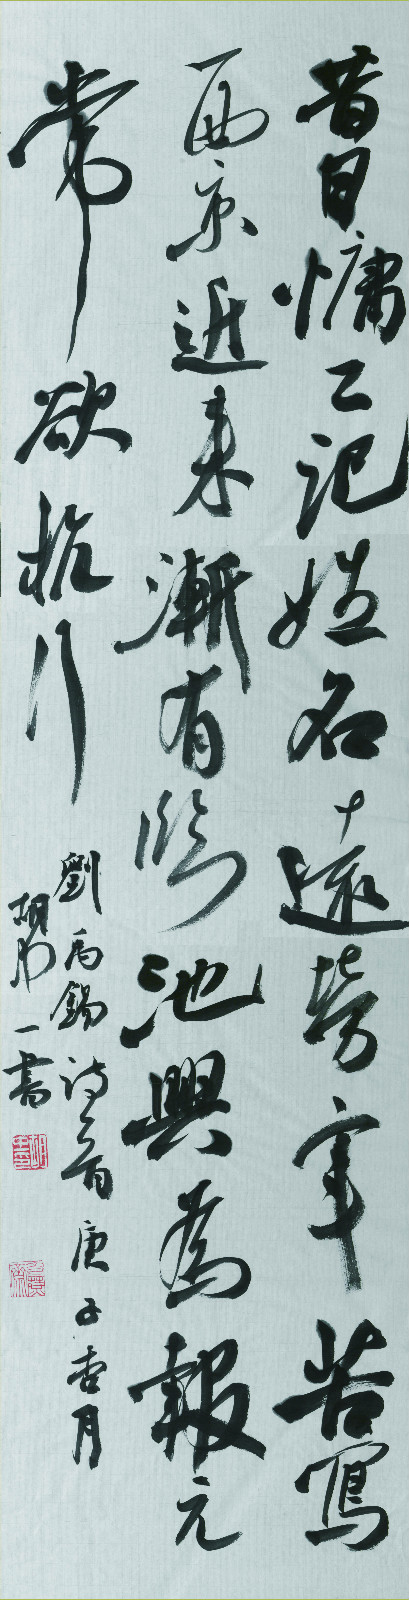 昔日慵工記姓名遠勞辛苦寫
西京近來漸有臨池興為報元
常欲抗行
劉禹錫詩一首庚子杏月
胡一書